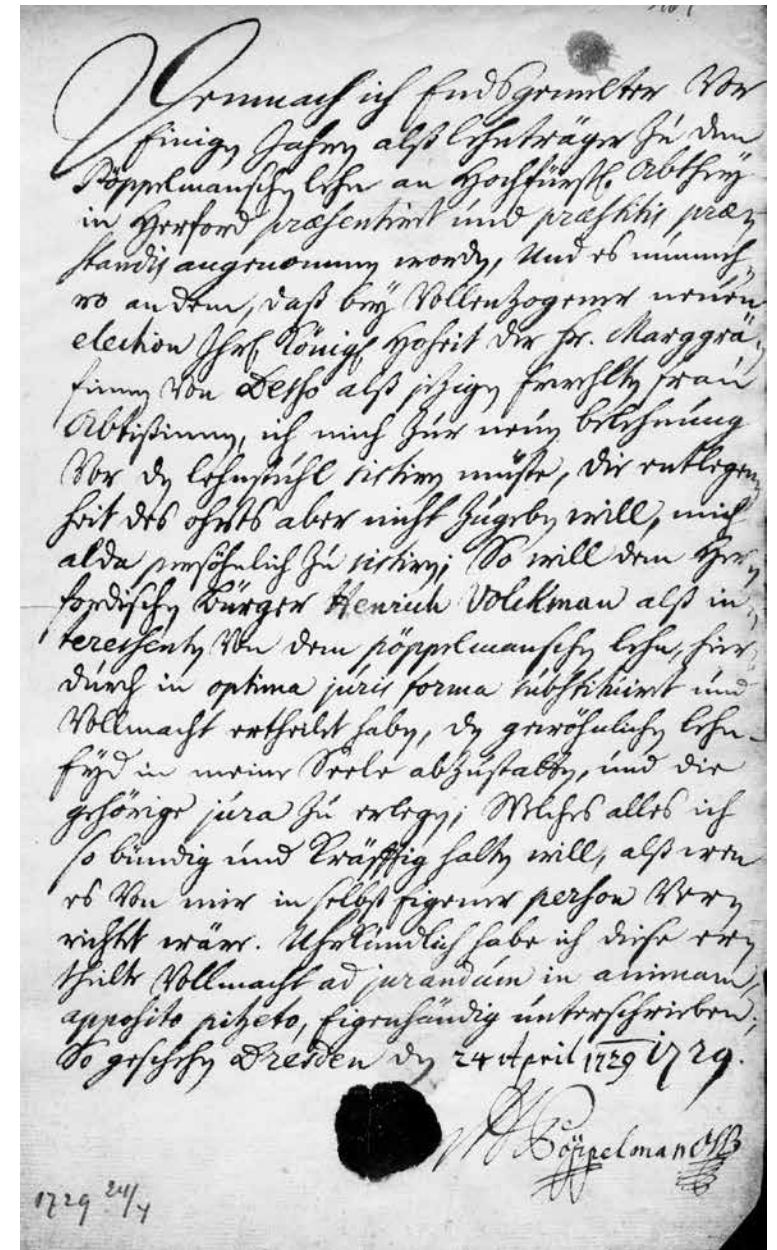 Demnach ich Endsgemelter Vor
Einigen Jahren alß lehnträger zu dem
Pöppelmanschen lehn an Hochfürstl. Abthey
in Herford præsentiret und præstitis præ-
standis angenommen worden, Und es nunmeh-
ro an dem, daß bey Vollenzogener neuen
election Ihrl. Königl. Hoheit der Fr. Marggrä-
finnen Von als jetzigen Erwehlten frau
Abtißinnen, ich mich zur neuen belehnung
Vor den lehnstuhl sistiren müste, die entlegen-
heit des ohrts aber nicht zugeben will, mich
alda persöhnlich zu sistiren; So will dem Her-
fordischen Bürger Henrich Volckman alß in-
teressenten Von dem pöppelmanschen lehn, hier-
durch in optima juris forma substituiret und
Vollmacht ertheilet haben, den gewöhnlichen lehn-
Eyd in meine Seele abzustatten, und die
gehörige jura zu erlegen; Welches alles ich
so bündig und kräfftig halten will, alß wen
es Von mir in selbst Eigener person Ver-
richtet wäre. Uhrkundlich habe ich diese er-
theilte Vollmacht ad jurandum in animam,
apposito pitzeto, Eigenhändig unterschrieben;
So geschehen Dresden den 24 April 1729 1729.
Pöppelman
1729 24/4